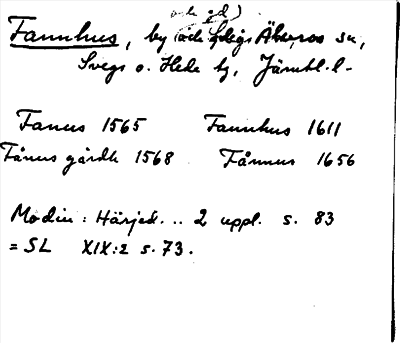 och gd)
Fannhus, by (och Älvros sn,
Svegs o. Hede tg, Jämtl. l.
Fanus 1565 Fannhus 1611
Fånus gårdh 1568 Fånnus 1656
Modin: Härjed. .. 2 uppl. s. 83
= SL XIX:2 s. 73.